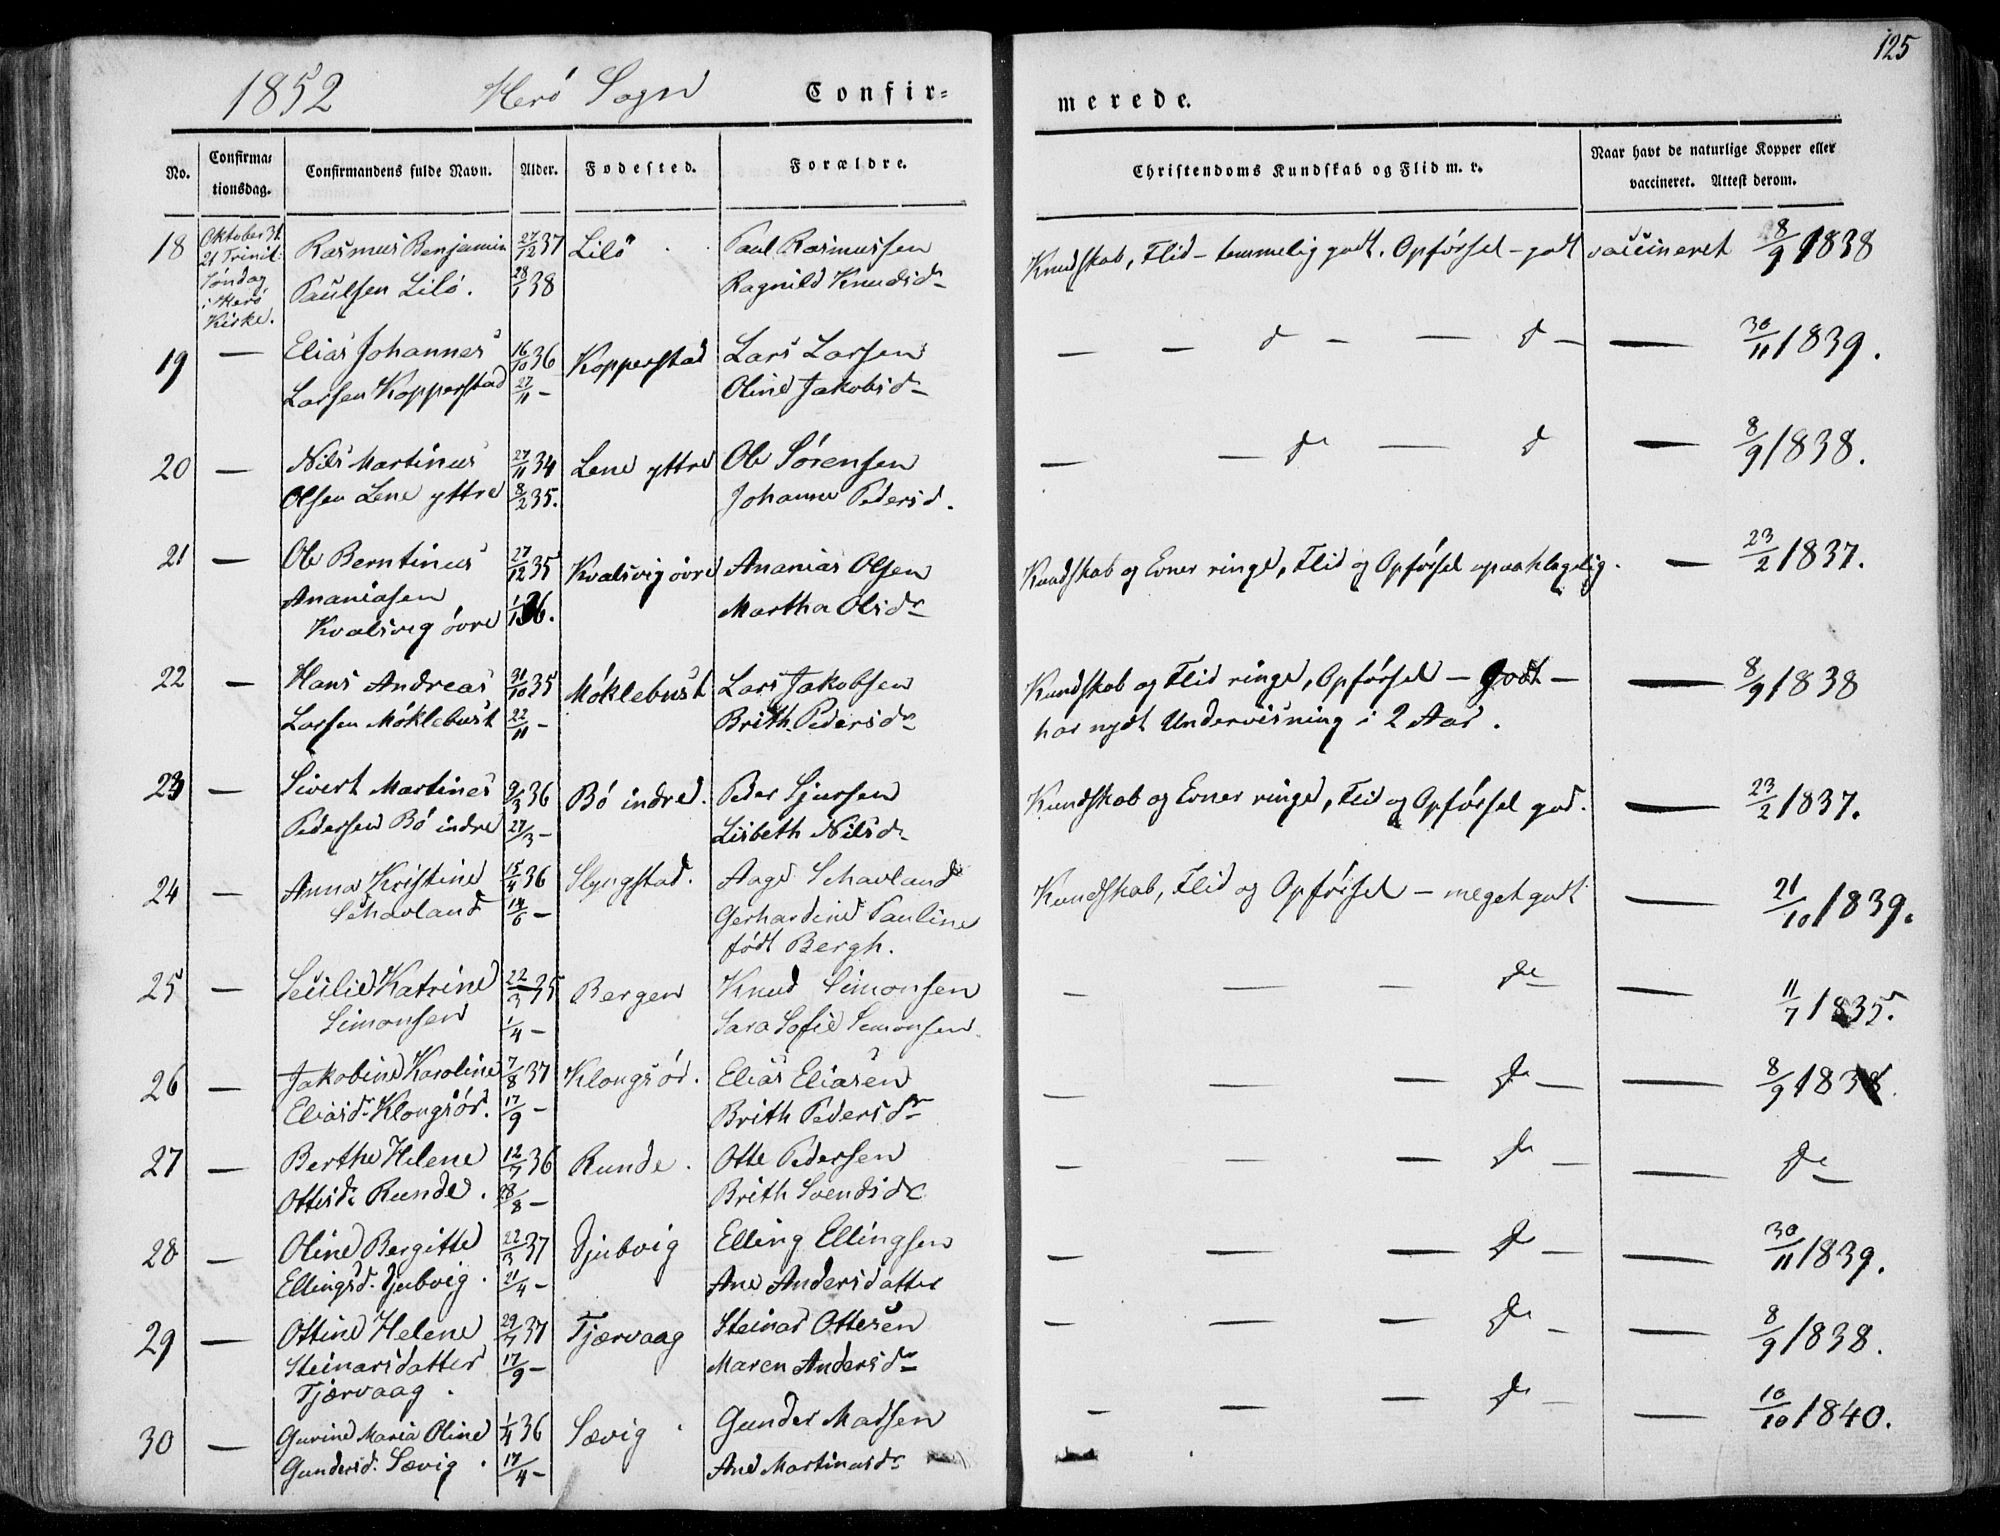 125
1852 Herö Sogn Confir-
merede.
No. Confirmationsdag. Confirmandens fulde Navn. Alder. Fødested. Forældre. Christendoms Kundskab og Flid m. v. Naar havt de naturlige Kopper eller vaccineret. Attest derom.
18 Oktober 31 Rasmus Benjamin 27/12 37 Lilö Paul Rasmussen Kundskab, Flid - temmelig godt. Opförsel - godt vaccineret 8/9 1838
21 Trinit:
Söndag Paulsen Lilö. 28/1 38 Ragnild Knudsdr
i Herö
Kirke.
19 — Elias Johannes 16/10 36 Kopperstad Lars Larsen — — d — — d — — 30/11 1839.
Larsen Kopperstad 27/11 — Oline Jakobsdr
20 — Nils Martinus 27/11 34 Lene yttre Ole Sörensen — — do — d — 8/9 1838.
Olsen Lene yttre 8/2 35. Johanne Pedersd.
21 — Ole Berntinus 27/12 35 Kvalsvig övre Ananias Olsen Kundskab og Evner ringe, Flid og Opförsel upaaklagelig. — 23/2 1837.
Ananiasen 1/1 36. Martha Olsdr
Kvalsvig övre
22 — Hans Andreas 31/10 35 Möklebust Lars Jakobsen Kundskab og Flid ringe, Opförsel — godt — — 8/9 1838
Larsen Möklebust 22/11 — Brith Pedersdr har nydt Undervisning i 2 Aar.
23 — Sivert Martines 9/3 36 Bö indre. Peder Sjursen Kundskab og Evner ringe, Flid og Opförsel god. — 23/2 1837.
Pedersen Bö indre 27/3 — Lisbeth Nilsdr
24 — Anna Kristine 15/4 36 Slyngstad. Aage Schavland Kundskab, Flid og Opförsel — meget godt — 21/10 1839.
Schavland 14/6 — Gerhardine Pauline
födt Bergh.
25 — Cecilie Katrine 22/3 35 Bergen Knud Simonsen — — — do — 11/7 1835.
Simonsen 1/4 — Sara Sofie Simonsen
26 — Jakobine Karoline 7/8 37 Klongsör. Elias Eliasen — — — do — — 8/9 1838.
Eliasdr Klongsör. 17/9 — Brith Pedersdr
27 — Berthe Helene 12/7 36 Runde. Otte Pedersen — — — do — — do
Ottesdr Runde. 28/8 — Brith Svendsdr
28 — Oline Bergitte 22/3 37 Djubvig Elling Ellingsen — — — do — — 30/11 1839.
Ellingsd. Djubvig. 21/4 — Ane Andersdatter
29 — Ottine Helene 29/7 37 Tjærvaag Steinar Ottesen — — — do — — 8/9 1838.
Steinarsdatter 17/9 — Maren Andersdr
Tjærvaag.
30 — Gurine Maria Oline 1/4 36 Sævig. Gunder Madsen — — — do — — 10/10 1840.
Gundersd. Sævig. 17/4 — Ane Martinusdr